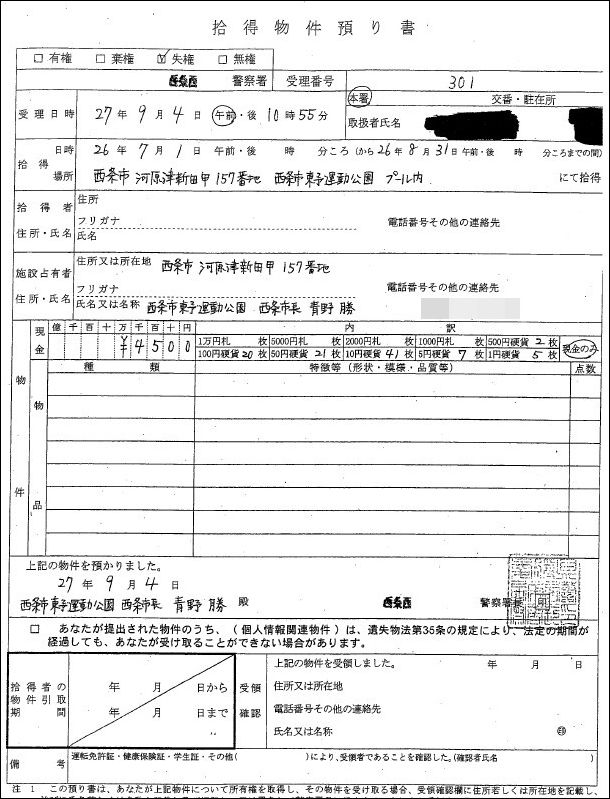 拾得物件預り書
□ 有権 □ 棄権 ☑ 失権 □ 無権
警察署 受理番号 301
受理日時 27年9月4日 午前・後10時55分
本署 交番・駐在所
取扱者氏名
拾得
日時 26年7月1日 午前・後 時 分ころ(から26年8月31日午前・後 時 分ころまでの間)
場所 西条市河原津新田甲157番地 西条市東予運動公園 プール内 にて拾得
拾得者
住所・氏名
住所
フリガナ
氏名
電話番号その他の連絡先
施設占有者
住所・氏名
住所又は所在地 西条市河原津新田甲157番地
フリガナ
氏名又は名称 西条市東予運動公園 西条市長 青野勝
電話番号その他の連絡先
物件
現金 億 千 百 十 万 千 百 十 円
¥4500
内訳
1万円札 枚 5000円札 枚 2000円札 枚 1000円札 枚 500円硬貨 2枚
100円硬貨 20枚 50円硬貨 21枚 10円硬貨 41枚 5円硬貨 7枚 1円硬貨 5枚
現金のみ
物品 種類 特徴等(形状・模様・品質等) 点数
上記の物件を預かりました。
27年9月4日
西条市東予運動公園 西条市長 青野勝 殿 警察署長
□ あなたが提出された物件のうち、(個人情報関連物件)は、遺失物法第35条の規定により、法定の期間が
経過しても、あなたが受け取ることができない場合があります。
拾得者の
物件引取
期間
年 月 日から
年 月 日まで
受領
確認
上記の物件を受領しました。 年 月 日
住所又は所在地
電話番号その他の連絡先
氏名又は名称 ㊞
備考 運転免許証・健康保険証・学生証・その他( )により、受領者であることを確認した。(確認者氏名 )
注 1 この預り書は、あなたが上記物件について所有権を取得し、その物件を受け取る場合、受領確認欄に住所若しくは所在地を記載し、